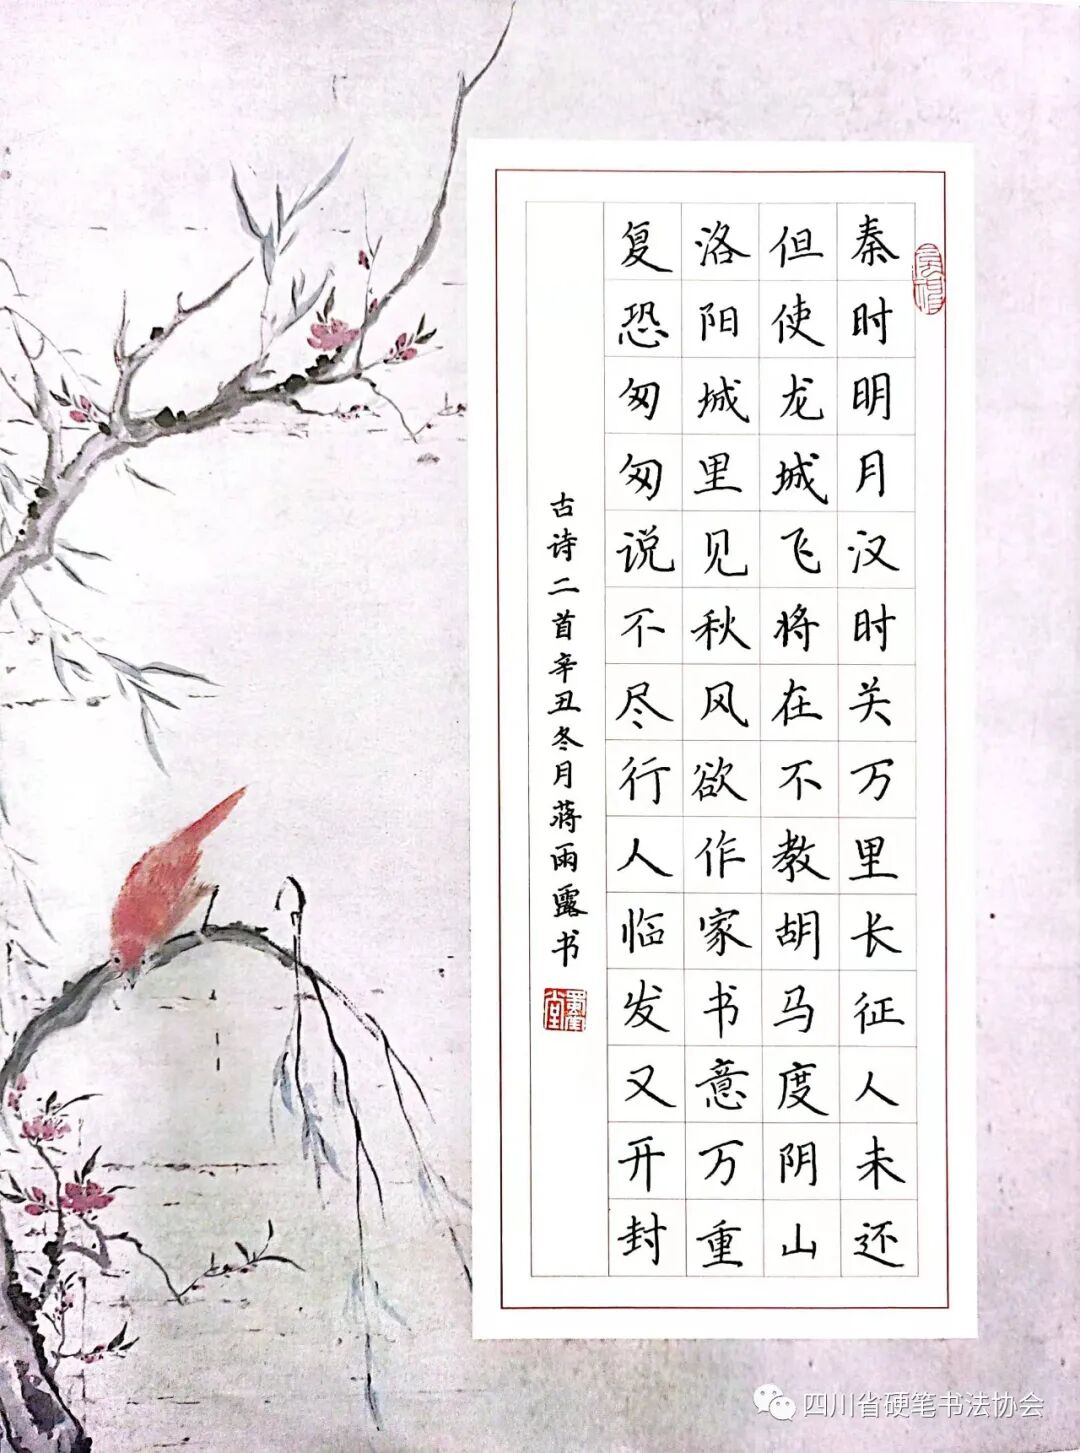 秦时明月汉时关万里长征人未还
但使龙城飞将在不教胡马度阴山
洛阳城里见秋风欲作家书意万重
复恐匆匆说不尽行人临发又开封
古诗二首辛丑冬月蒋雨露书
四川省硬笔书法协会